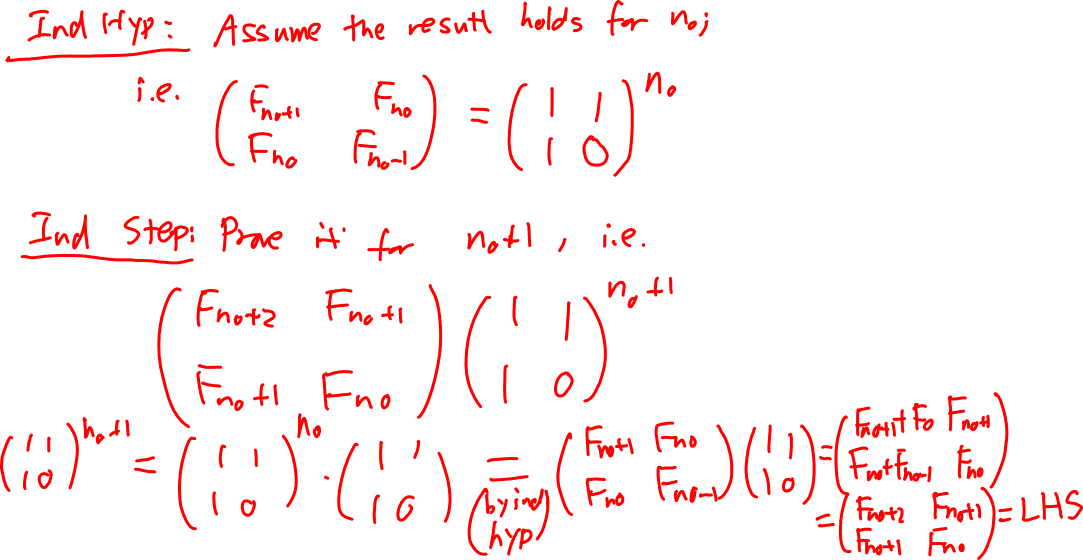 Ind Hyp: Assume the result holds for n₀;
i.e. \begin{pmatrix} F_{n_0+1} & F_{n_0} \\ F_{n_0} & F_{n_0-1} \end{pmatrix} = \begin{pmatrix} 1 & 1 \\ 1 & 0 \end{pmatrix}^{n_0}
Ind Step: Prove it for n₀+1, i.e.
\begin{pmatrix} F_{n_0+2} & F_{n_0+1} \\ F_{n_0+1} & F_{n_0} \end{pmatrix} \begin{pmatrix} 1 & 1 \\ 1 & 0 \end{pmatrix}^{n_0+1}
\begin{pmatrix} 1 & 1 \\ 1 & 0 \end{pmatrix}^{n_0+1} = \begin{pmatrix} 1 & 1 \\ 1 & 0 \end{pmatrix}^{n_0} \cdot \begin{pmatrix} 1 & 1 \\ 1 & 0 \end{pmatrix} \underset{\text{(by ind hyp)}}{=} \begin{pmatrix} F_{n_0+1} & F_{n_0} \\ F_{n_0} & F_{n_0-1} \end{pmatrix} \begin{pmatrix} 1 & 1 \\ 1 & 0 \end{pmatrix} = \begin{pmatrix} F_{n_0+1}+F_0 & F_{n_0+1} \\ F_{n_0}+F_{n_0-1} & F_{n_0} \end{pmatrix}
= \begin{pmatrix} F_{n_0+2} & F_{n_0+1} \\ F_{n_0+1} & F_{n_0} \end{pmatrix} = LHS